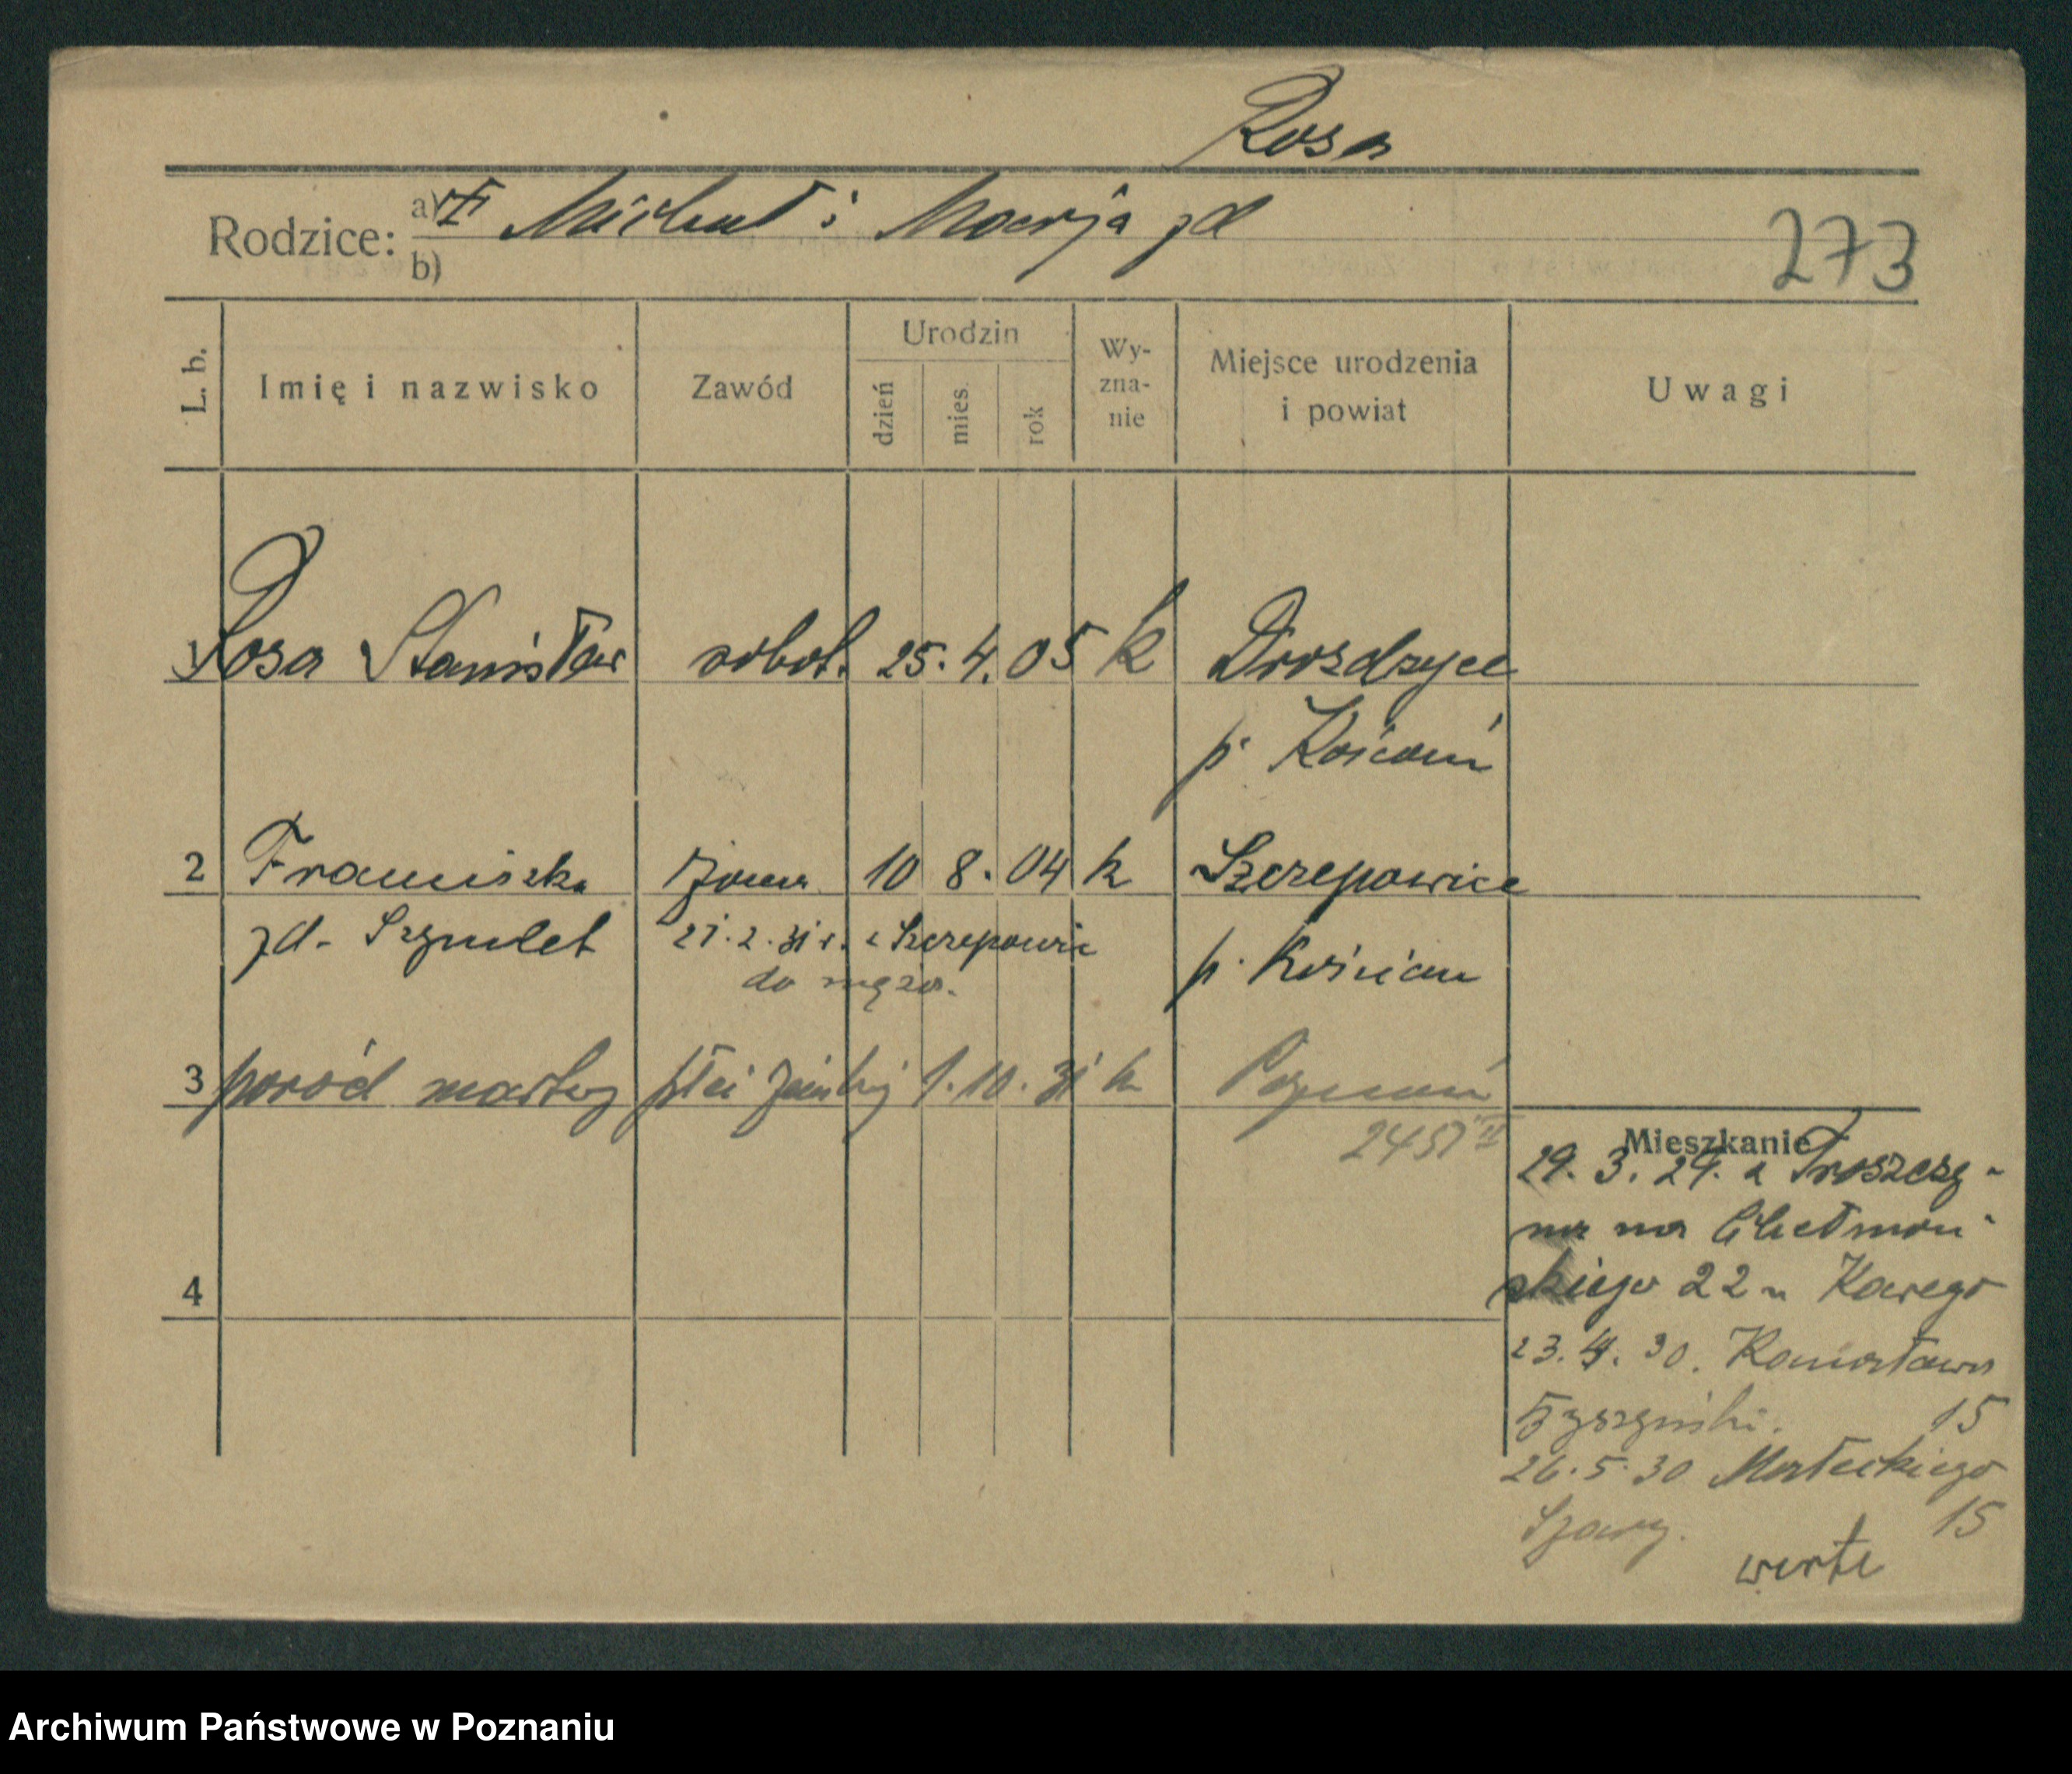 Rosa
Rodzice: a) Michał i Marja zd
b)
273
L. b.
Imię i nazwisko
Zawód
Urodzin
dzień
mies.
rok
Wy-
zna-
nie
Miejsce urodzenia
i powiat
Uwagi
1 Rosa Stanisław robot. 25. 4. 05 k Drozdzyce
p. Kościan
2 Franciszka żona 10 8. 04 k Szczepowice
zd. Szymlet 27. 2. 31 r. z Szczepowic
p. Kościan
do męża.
3 poród martwy płci żeńskiej 1. 10. 31 k Poznań
2457 II
4
Mieszkanie
29. 3. 29. z Troszczy-
na na Chełmoń-
skiego 22 u Kawego
23. 4. 30. Kanałowa
15
26. 5. 30 Małeckiego
Szary. 15
verte
Archiwum Państwowe w Poznaniu